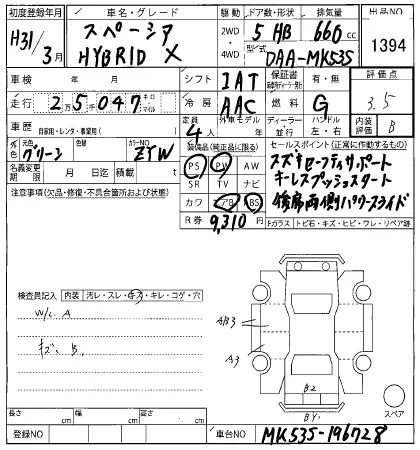 初度登録年月 車名・グレード 駆動 ドア数・形状 排気量 出品NO
H31/3月 スペーシア HYBRID X 2WD 4WD 5 HB 660 cc 1394
型式 DAA-MK53S
車検 年 月 シフト IAT 保証書 有・無 評価点
走行 2万5千047 キロ・マイル 冷房 AAC 燃料 G 3.5
車歴 自家用・レンタ・事業用( ) 定員 4人 外車モデル 年 ディーラー 並行 ハンドル 左・右 内装評価 B
元色 グリーン 色替 カラーNO ZTW 装備品(純正品に限る) セールスポイント(正常に作動するもの)
名義変更期限 月 日迄 積載 t PS PW AW スズキセーフティサポート
注意事項(欠品・修復・不具合箇所および状態) SR TV ナビ キーレスプッシュスタート
カワ エアB ABS 修席両側パワースライド
R券 9,310円 Fガラス・トビ石・キズ・ヒビ・ワレ・リペア跡
検査員記入 内装 汚レ・スレ・キズ・キレ・コゲ・穴
W/C A
キズ、B
AB3
A3
B2
BY1
スペア
長さ cm 幅 cm 高さ cm
登録NO 車台NO MK53S-196728